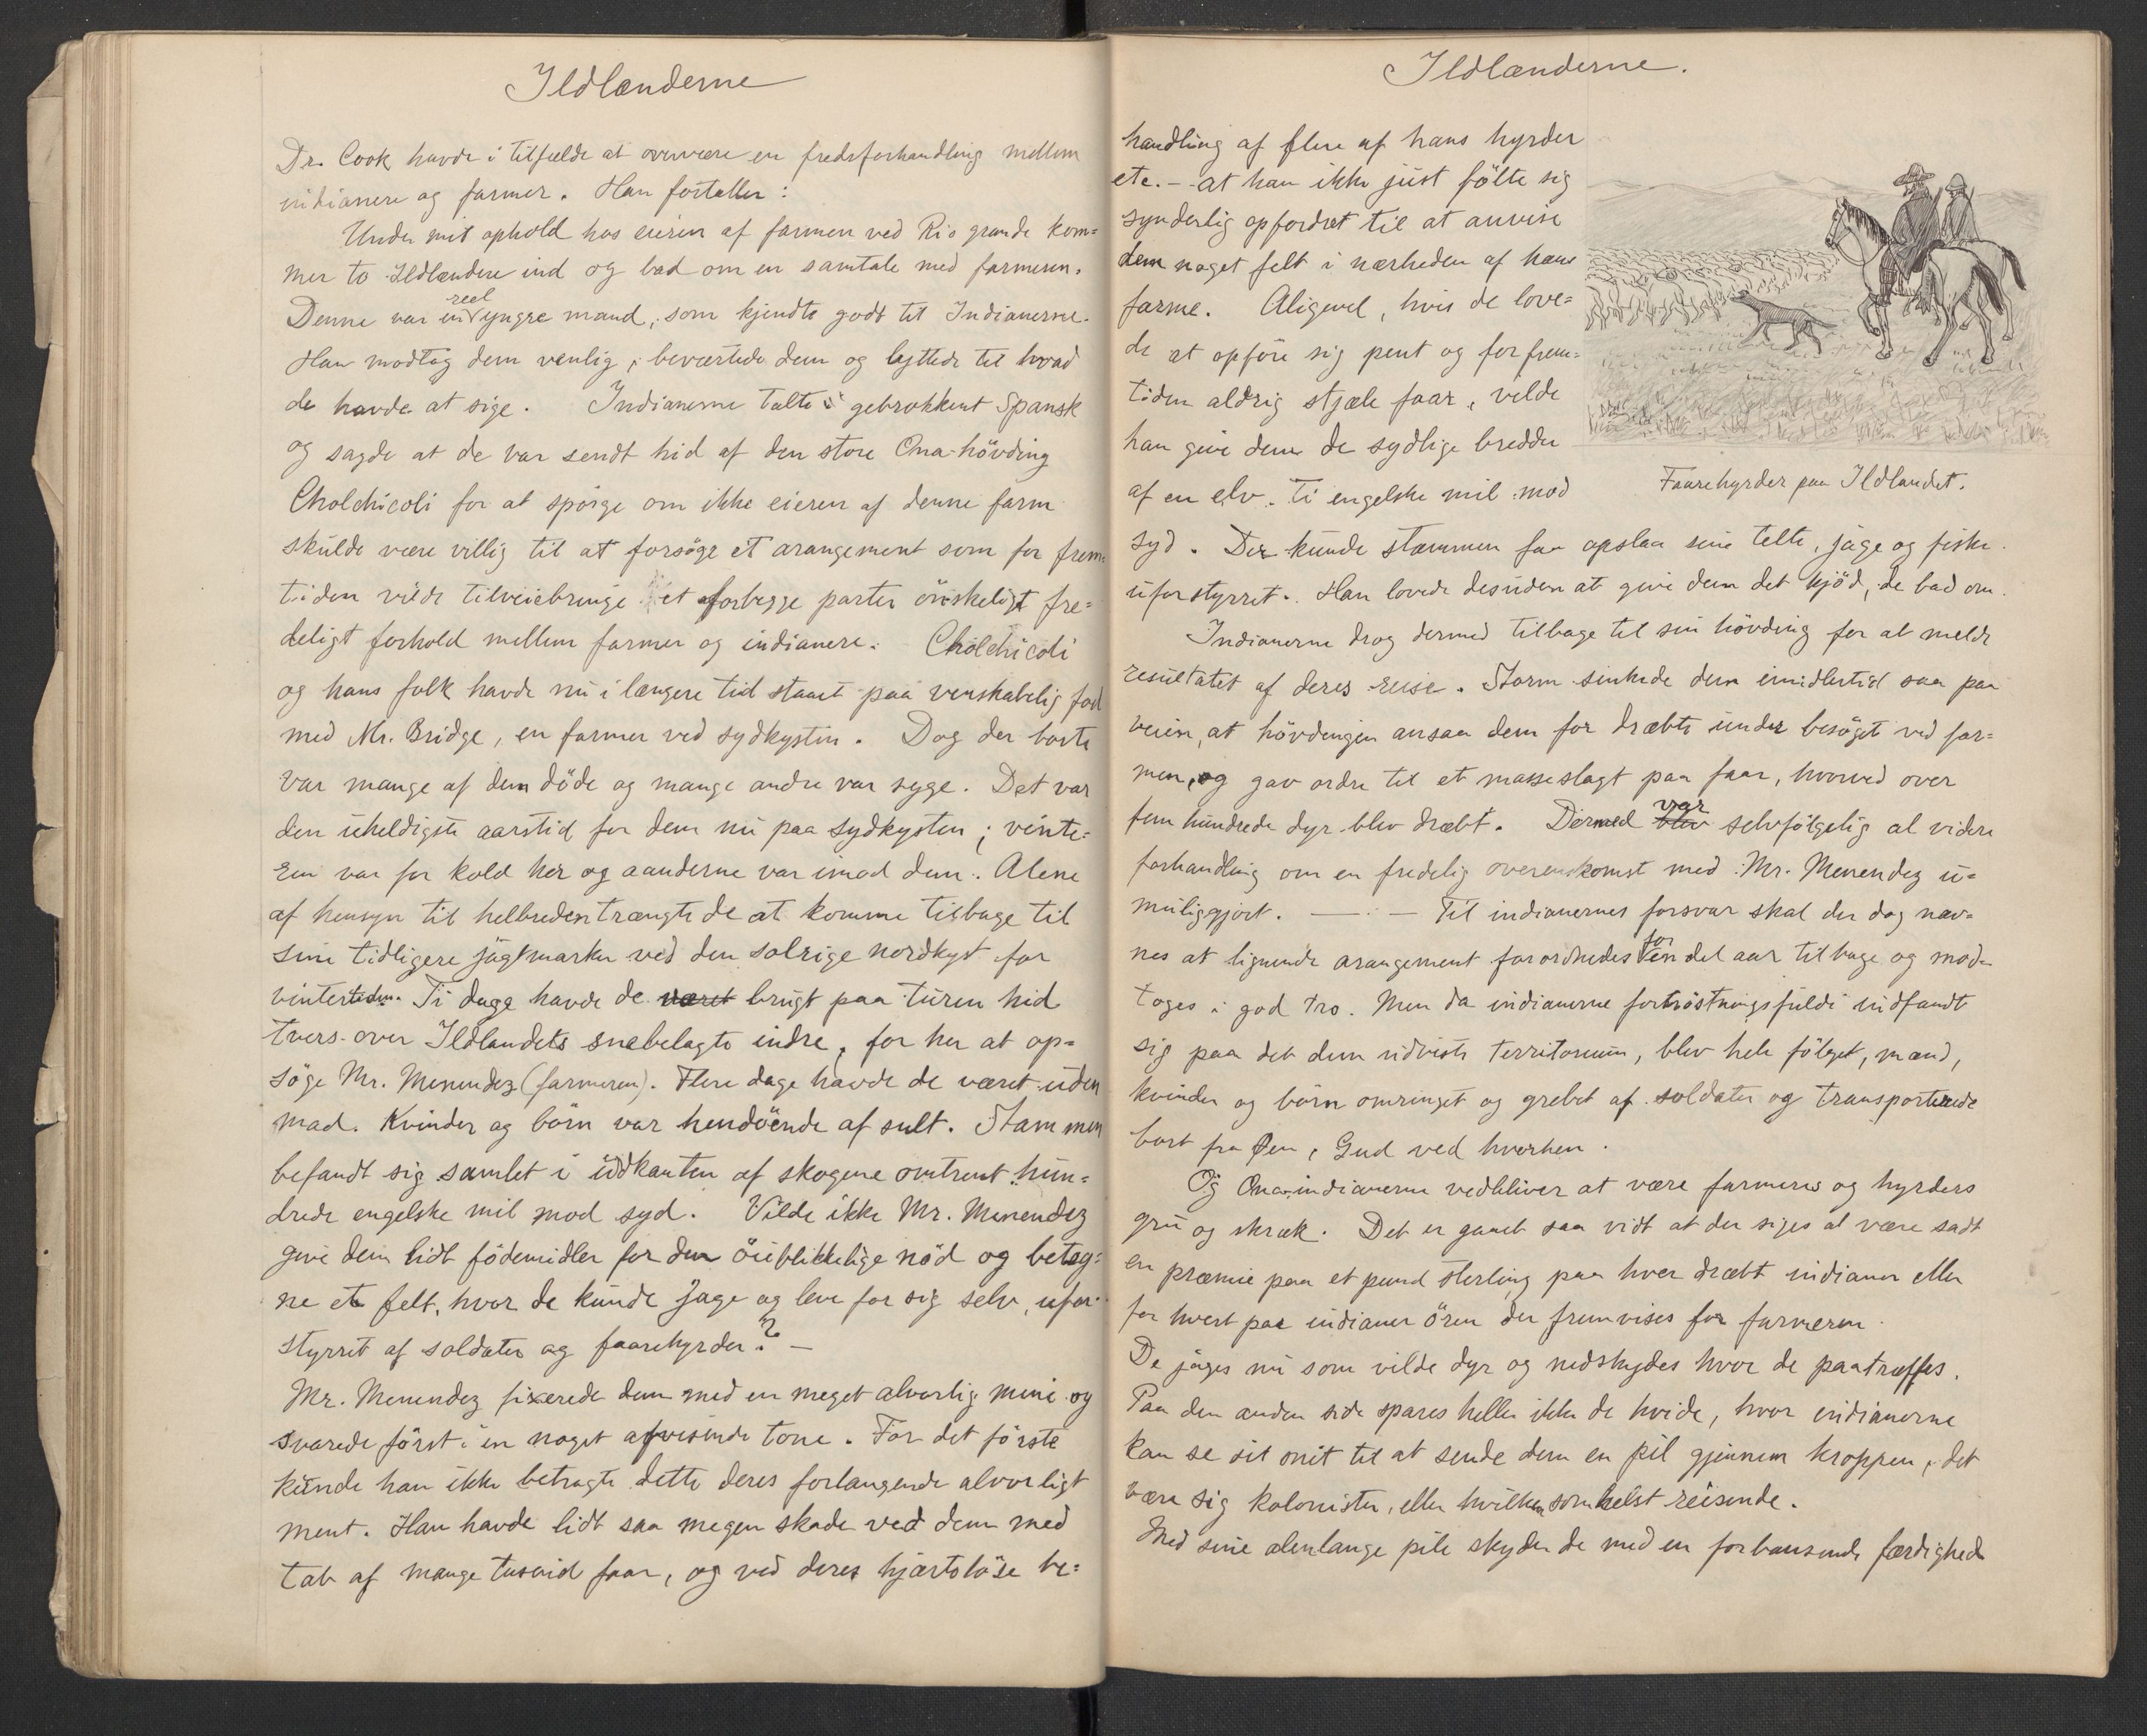 Ildlænderne
Dr. Cook havde i tilfælde at overvære en fredsforhandling mellem
indianere og farmer. Han fortæller:
Under mit ophold hos eieren af farmen ved Rio grande kom=
mer to Ildlændere ind og bad om en samtale med farmeren.
Denne var en reel yngre mand, som kjendte godt til Indianerne.
Han modtog dem venlig, beværtede dem og lyttede til hvad
de havde at sige. Indianerne talte i gebrokkent Spansk
og sagde at de var sendt hid af den store Ona-hövding
Cholchicoli for at spörge om ikke eieren af denne farm
skulde være villig til at forsöge et arangement som for frem=
tiden vilde tilveiebringe et forbegge parter önskeligt fre=
deligt forhold mellem farmer og indianere. Cholchicoli
og hans folk havde nu i længere tid staaet paa venskabelig fod
med Mr. Bridge, en farmer ved sydkysten. Dog der borte
var mange af dem döde og mange andre var syge. Det var
den uheldigste aarstid for dem nu paa sydkysten; vinte=
ren var for kold her og aanderne var imod dem. Alene
af hensyn til helbreden trængte de at komme tilbage til
sine tidligere jagtmarker ved den solrige nordkyst for
vintertiden. Ti dage havde de været brugt paa turen hid
tvers over Ildlandets snebelagte indre, for her at op=
söge Mr. Menendez (farmeren). Flere dage havde de været uden
mad. Kvinder og börn var hendöende af sult. Stammen
befandt sig samlet i udkanten af skogene omtrent hun=
drede engelske mil mod syd. Vilde ikke Mr. Menendez
give dem lidt födemidler for den öieblikkelige nöd og beteg=
ne et felt, hvor de kunde jage og leve for sig selv, ufor=
styrret af soldater og faarehyrder? —
Mr. Menendez fixerede dem med en meget alvorlig mine og
svarede först i en noget afvisende tone. For det förste
kunde han ikke betragte dette deres forlangende alvorligt
ment. Han havde lidt saa megen skade ved dem med
tab af mange tusind faar, og ved deres hjærtelöse be=
Ildlænderne.
handling af flere af hans hyrder
etc. — at han ikke just fölte sig
synderlig opfordret til at anvise
dem noget felt i nærheden af hans
farme. Aligevel, hvis de love=
de at opföre sig pent og for frem=
tiden aldrig stjæle faar, vilde
han give dem de sydlige bredder
af en elv. Ti engelske mil mod
Faarehyrder paa Ildlandet.
syd. Der kunde stammen faa opslaa sine telte, jage og fiske
uforstyrret. Han lovede desuden at give dem det kjöd, de bad om.
Indianerne drog dermed tilbage til sin hövding for at melde
resultatet af deres reise. Storm sinkede dem imidlertid saa paa
veien, at hövdingen ansaa dem for dræbte under besöget ved far=
men, og gav ordre til et masseslagt paa faar, hvorved over
fem hundrede dyr blev dræbt. Dermed blev var selvfölgelig al videre
forhandling om en fredelig overenskomst med Mr. Menendez u=
muliggjort. — : — Til indianernes forsvar skal der dog næv=
nes at lignende arangement forordnedes for en del aar tilbage og mod=
toges i god tro. Men da indianerne fortröstningsfuldt indfandt
sig paa det dem udviste territorium, blev hele fölget, mænd,
kvinder og börn omringet og grebet af soldater og transporterede
bort fra Øen, Gud ved hvorhen.
Og Ona-indianerne vedbliver at være farmeres og hyrders
gru og skræk. Det er gaaet saa vidt at der siges at være sadt
en præmie paa et pund sterling paa hver dræbt indianer eller
for hvert par indianer ören der fremvises for farmeren.
De jages nu som vilde dyr og nedskydes hvor de paatræffes.
Paa den anden side spares heller ikke de hvide, hvor indianerne
kan se sit snit til at sende dem en pil gjennem kroppen, det
være sig kolonister, eller hvilkensomhelst reisende.
Med sine alenlange pile skyder de med en forbausende færdighed